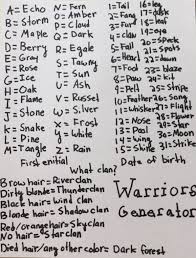 A=Echo N=Fern 1=Tail 16=leg
B=Storm O=Amber 2=Fang 17=
C=Maple P=Cloud 3= 18=
D=Berry Q=Dark 4=claw 19=
E=Gray R=Eagle 5= 20=Speck
F=Rose S= 6=Tuft 21=Spots
G=Ice T=Sun 7=Foot 22=
H=Oak U=Ash 8=Paw 24=kit
I=Flame V=Russel 9=Pelt 25=
J=Stone W=Silver 10=Feather 26=
K=Snake X=Frost 11=Whisker 27=
L=Pine Y=White 12=Nose 28=Flower
M=Tangle Z=Rain 13= 29=Shade
14=wing 30=Moon
15=Shine 31=Strike
First enitial Date of birth
What clan?
Brow hair=Riverclan
Dirty blonde=Thunderclan
Black hair=Wind clan
Blonde hair=Shadowclan
Red/orangehair=Skyclan
No hair=Starclan
Died hair/any other color=Dark forest
Warriors
Generator